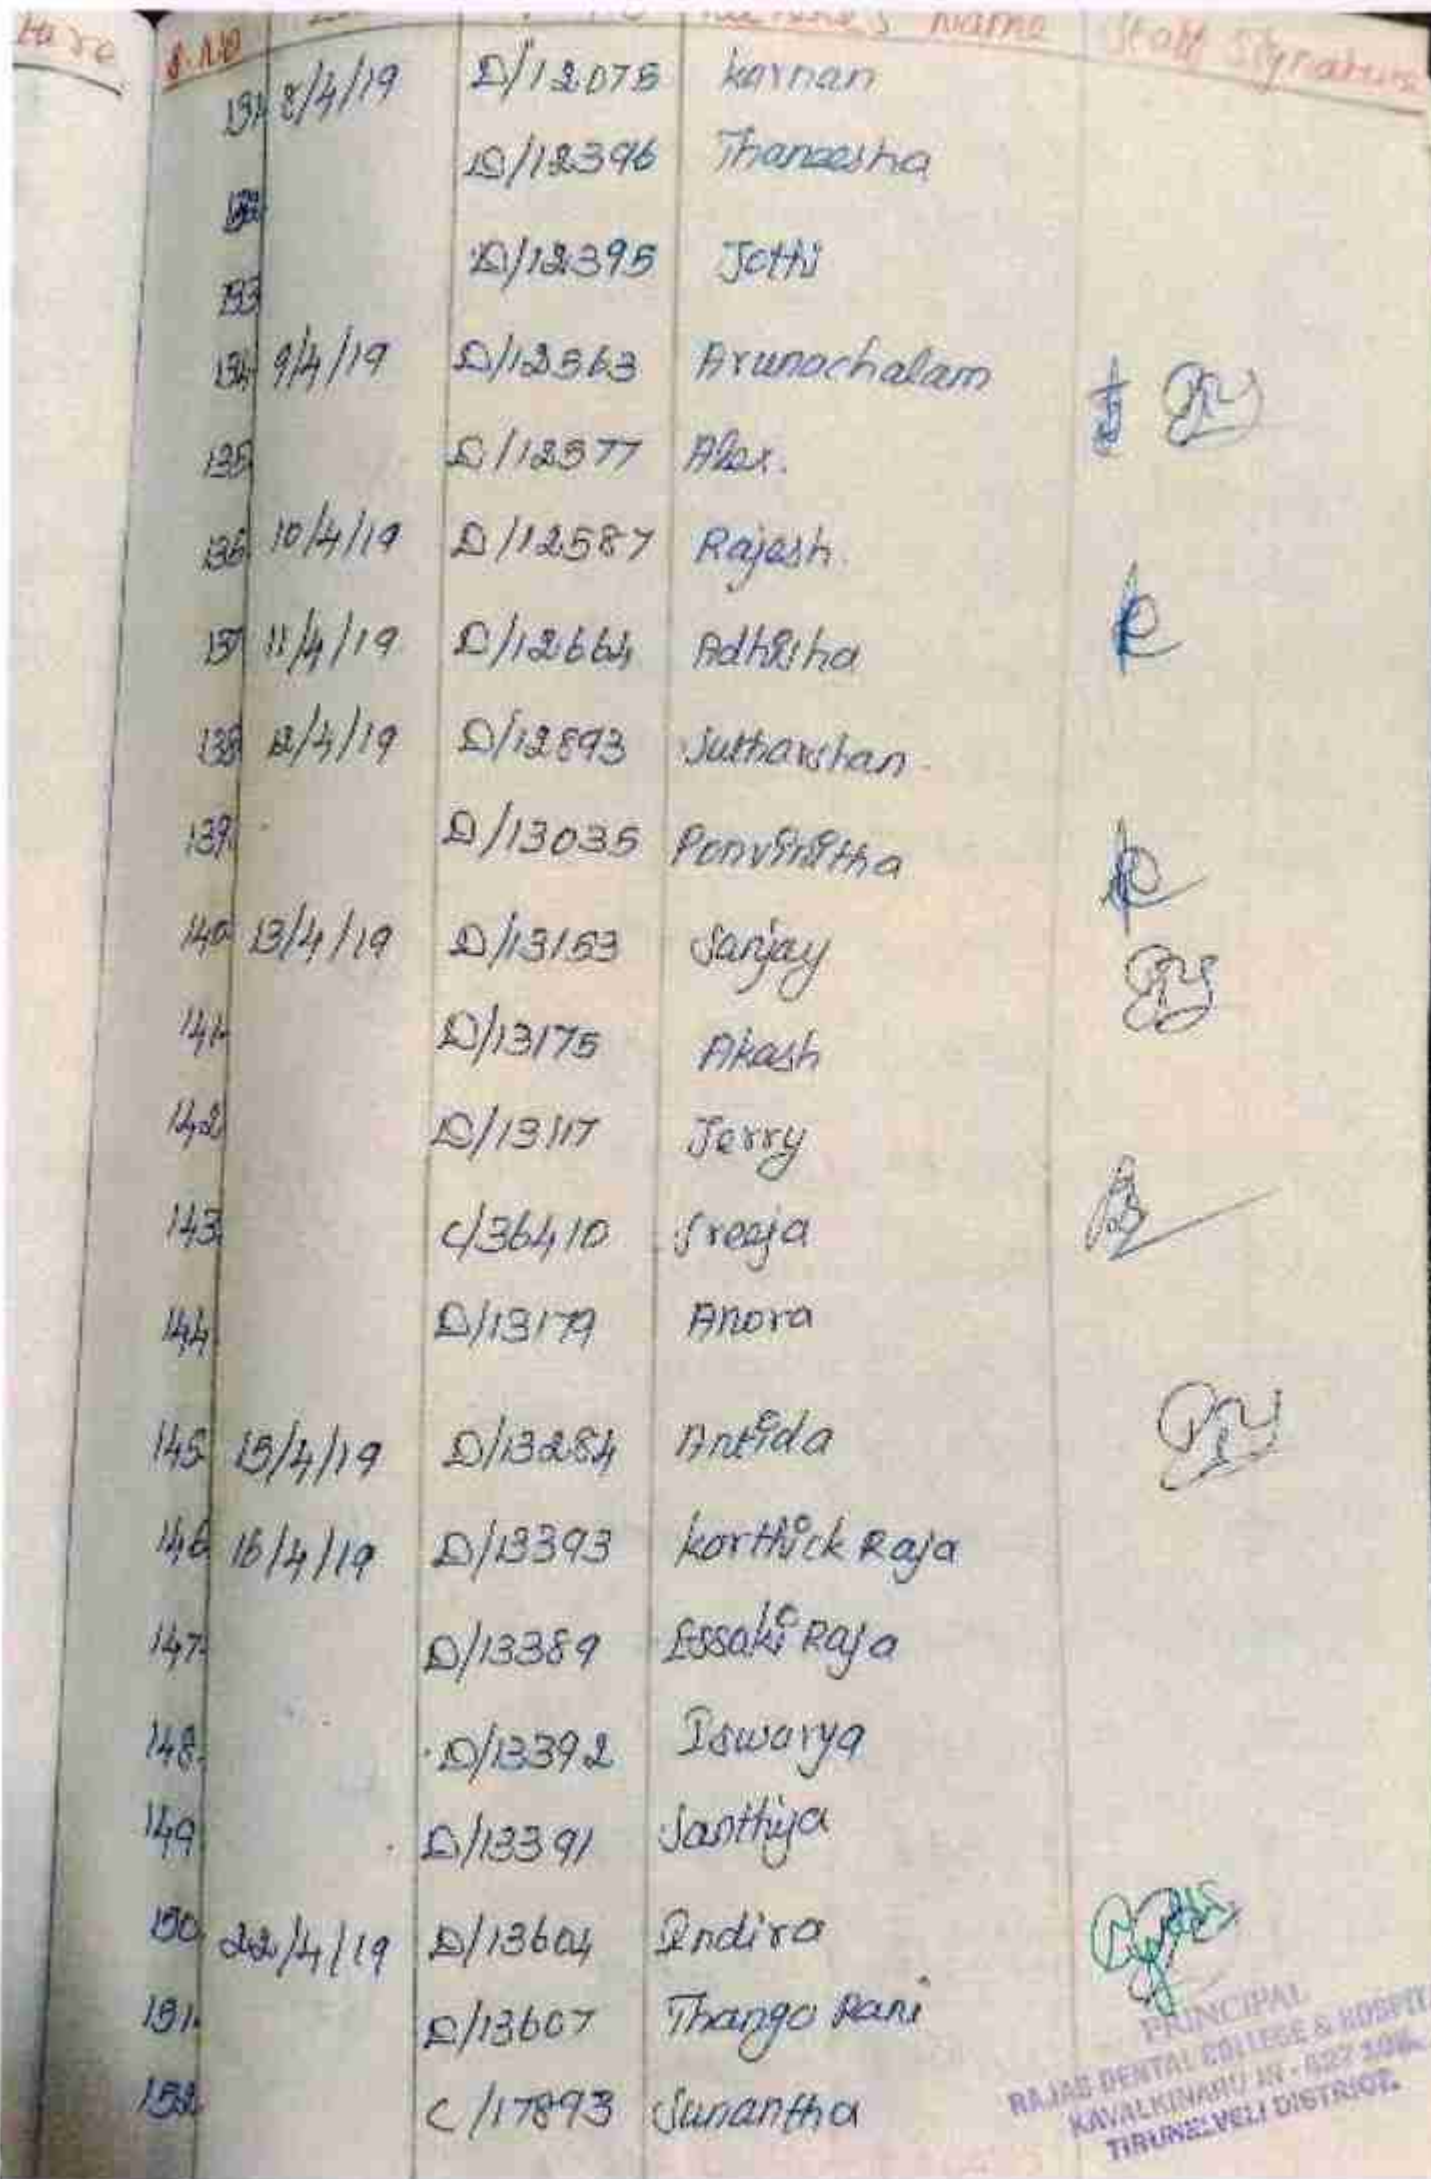 S.NO Name Staff Signature
131 8/4/19 D/12075 karnan
132 D/12396 Thaneesha
133 D/12395 Jothi
134 9/4/19 D/12563 Arunachalam
135 D/12577 Alex.
136 10/4/19 D/12587 Rajesh.
137 11/4/19 D/12664 Adhisha
138 12/4/19 D/12893 Sutharshan
139. D/13035 Ponvinitha
140 13/4/19 D/13153 Sanjay
141. D/13175 Akash
142 D/13117 Jerry
143 C/36410 Sreeja
144 D/13179 Anora
145 15/4/19 D/13284 Antida
146 16/4/19 D/13393 karthick Raja
147. D/13389 Essaki Raja
148. D/13392 Iswarya
149 D/13391 Santhiya
150 22/4/19 D/13604 Indira
151. D/13607 Thanga Rani
152 C/17893 Sunantha
PRINCIPAL
RAJAS DENTAL COLLEGE & HOSPITAL
KAVALKINARU JN - 627 105.
TIRUNELVELI DISTRICT.